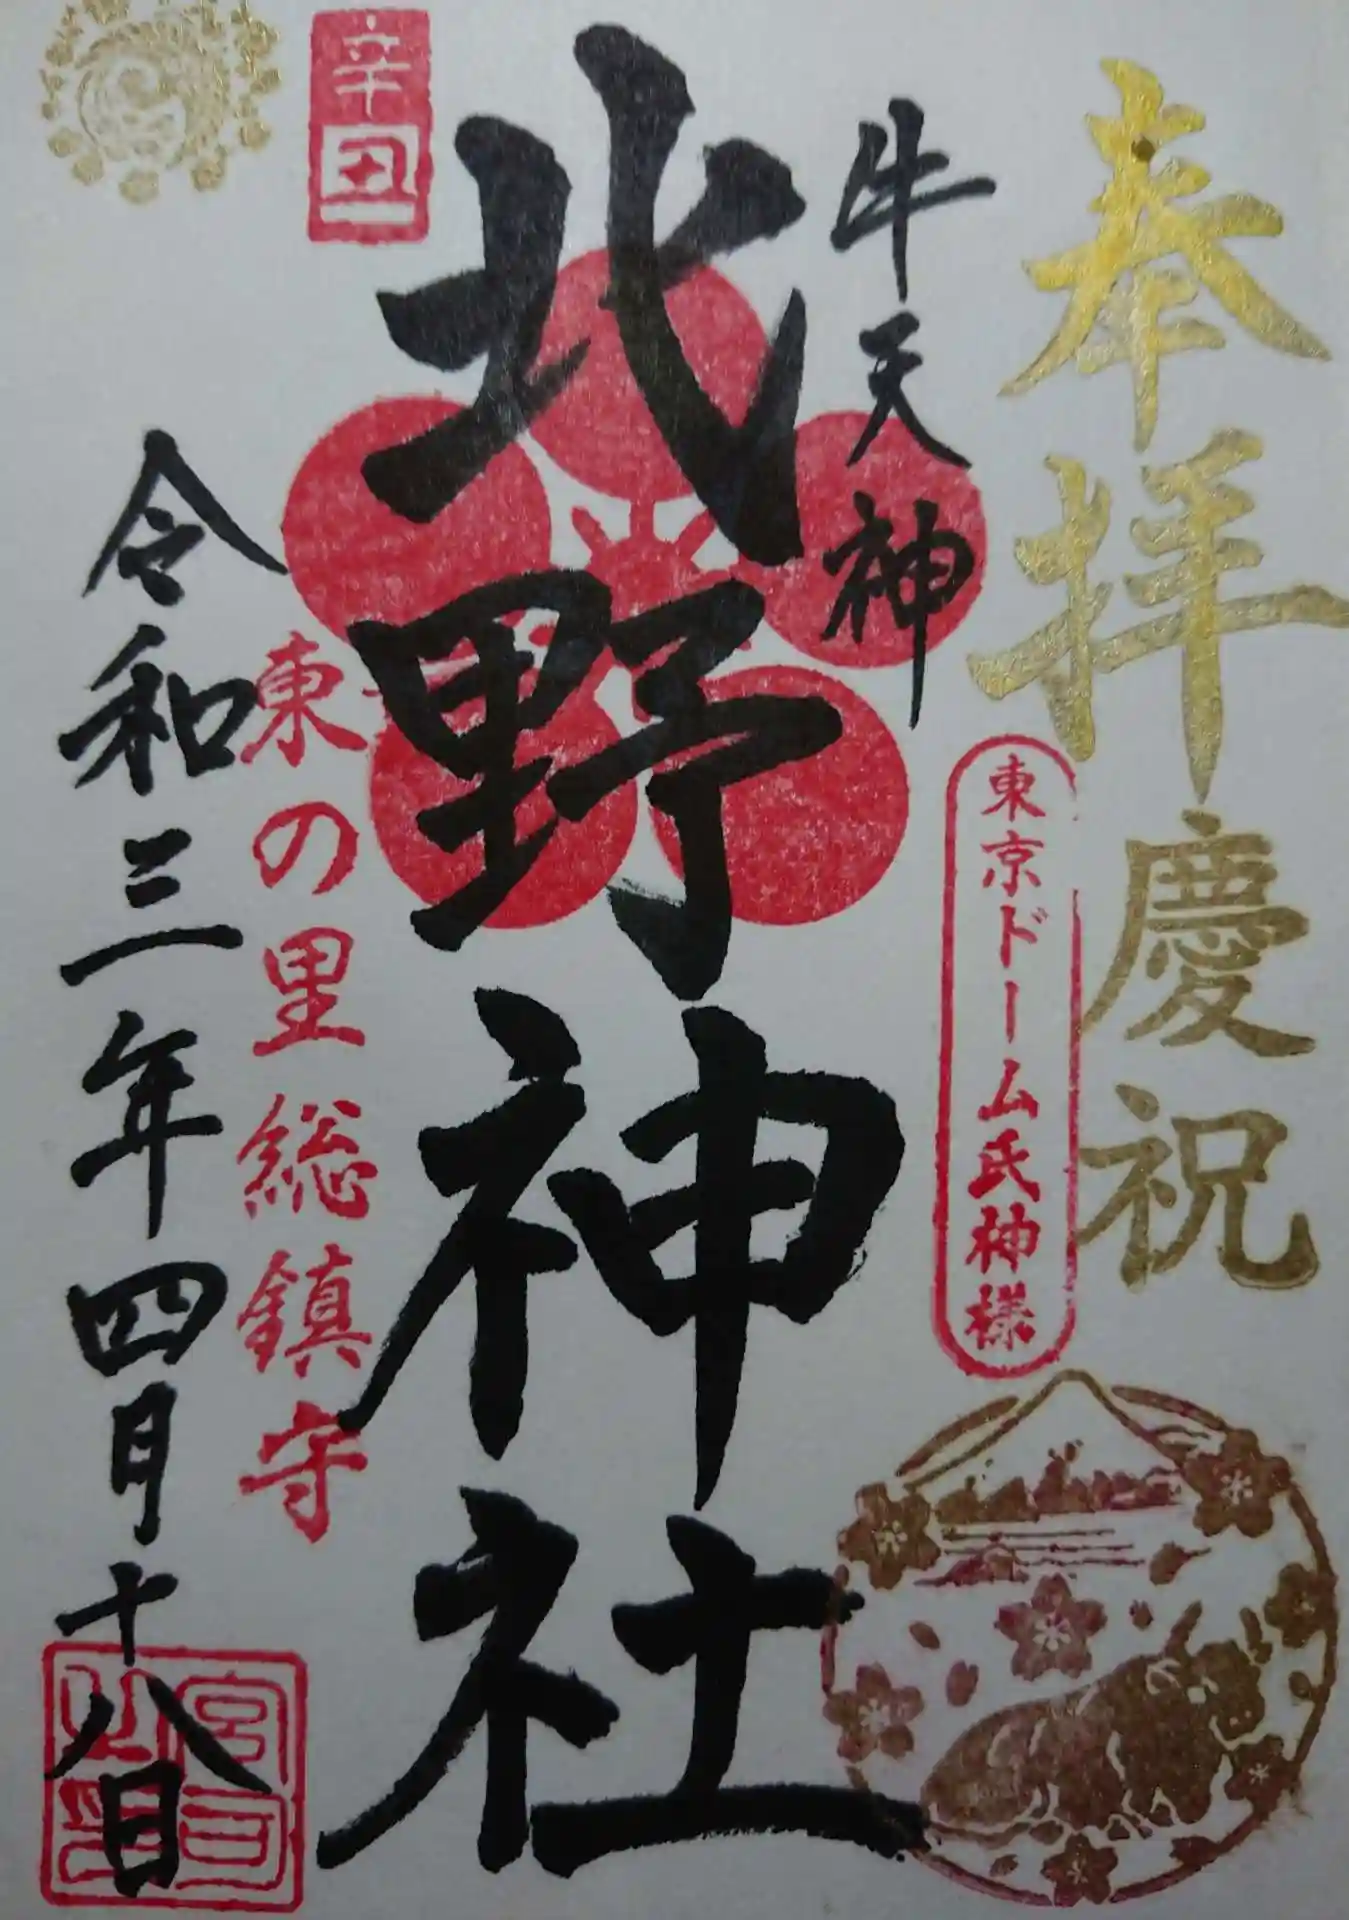 奉拝
慶祝
東京ドーム氏神様
牛天神
北野神社
辛丑
東の里総鎮守
令和三年四月十八日
宮司之印